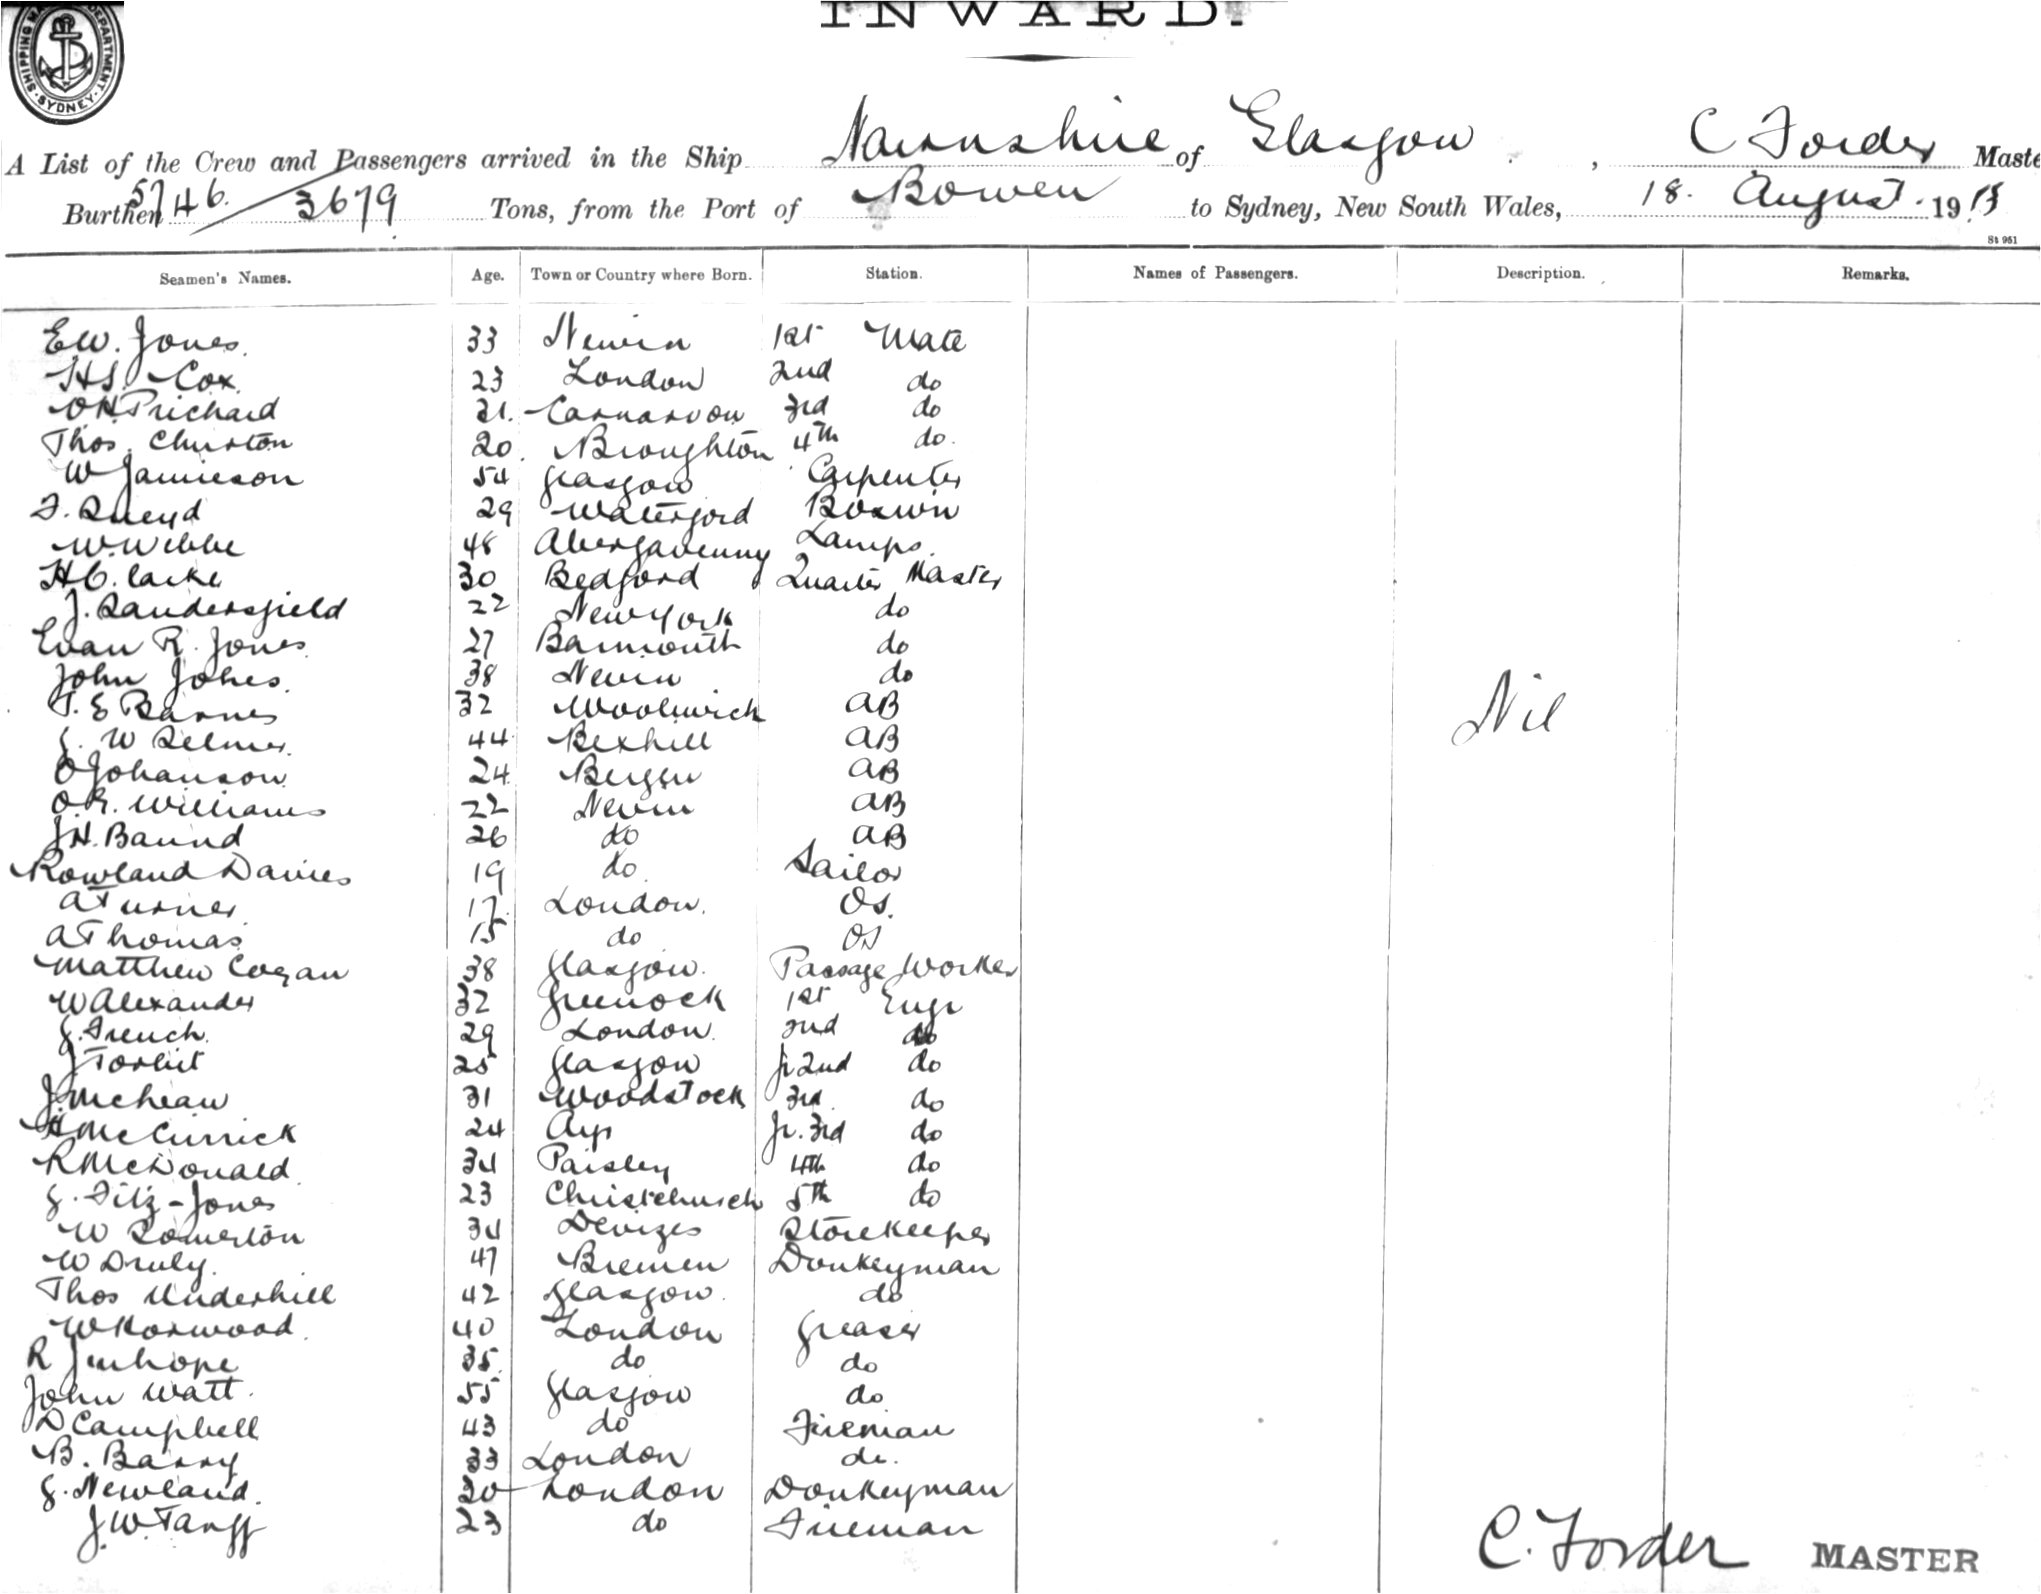 SHIPPING MA DEPARTMENT. SYDNEY.
INWARD.
A List of the Crew and Passengers arrived in the Ship Nairnshire of Glasgow, C Forder Maste
Burthen 5746. 3679 Tons, from the Port of Bowen to Sydney, New South Wales, 18. August. 19
St 951
Seamen's Names. Age. Town or Country where Born. Station. Names of Passengers. Description. Remarks.
E W. Jones. 33 Nevin 1st Mate
H S. Cox. 23 London 2nd do
O H Prichard 21. Carnarvon 3rd do
Thos. Churton 20. Broughton 4th do.
W Jamieson 54 Glasgow Carpenter
29 Waterford Boswin
W. Webbe 48 Abergavenny Lamps.
H C. larke 30 Bedford Quarter Master
J. Sandersfield 22 New York do
Evan R. Jones 27 Barmouth do
John Jones. 38 Nevin do
T. E Barnes 32 Woolwich AB
G. W Selmes. 44 Bexhill AB
O Johanson 24 Bergen AB
O. R. Williams 22 Nevin AB
J H. Baund 26 do AB
Rowland Davies 19 do Sailor
A Turner 17. London. OS.
A Thomas 15 do OS
Matthew Cogan 38 Glasgow. Passage Worker
W Alexander 32 Greenock 1st Engr
G. French. 29 London. 2nd do
J Torbit 25 Glasgow Jr 2nd do
J. McLean 31 Woodstock 3rd do
H McCurrick 24 Ayr Jr. 3rd do
R McDonald 34 Paisley 4th do
G. Fitz-Jones 23 Christchurch 5th do
W Somerton 34 Devizes Storekeeper
W Druly. 47 Bremen Donkeyman
Thos Underhill 42 Glasgow. do
W Norwood. 40 London Greaser
R 35. do do
John Watt. 55 Glasgow do
D Campbell 43 do Fireman
B. Barry 33 London do.
G. Newland. 20 London Donkeyman
J. W. 23 do Fireman
Nil
C. Forder MASTER